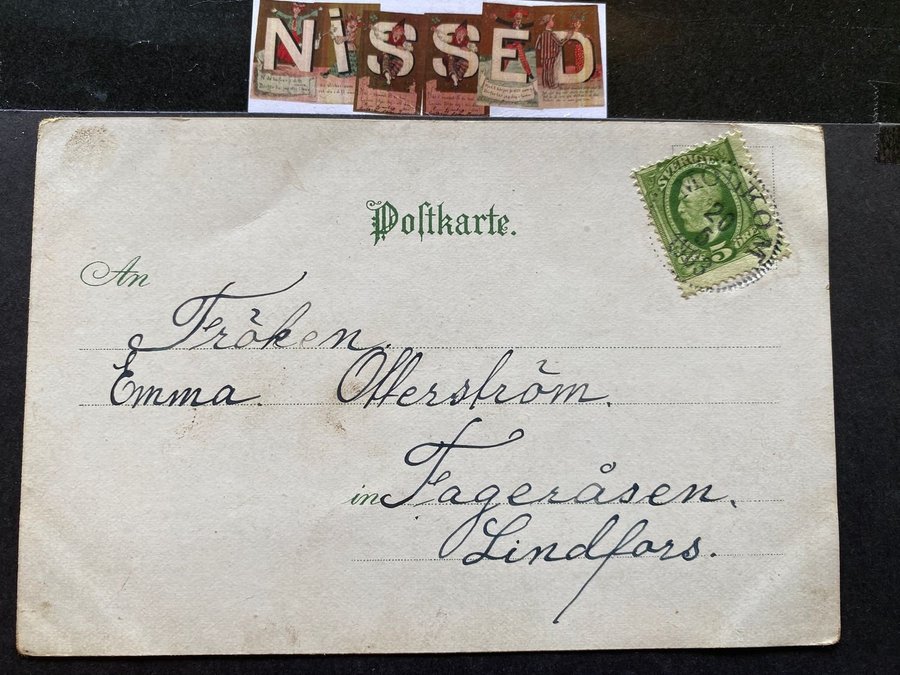 NISSEO
Postkarte.
SVERIGE
MOLKOM
5 ÖRE
An
Fröken.
Emma. Otterström.
in Fageråsen.
Lindfors.